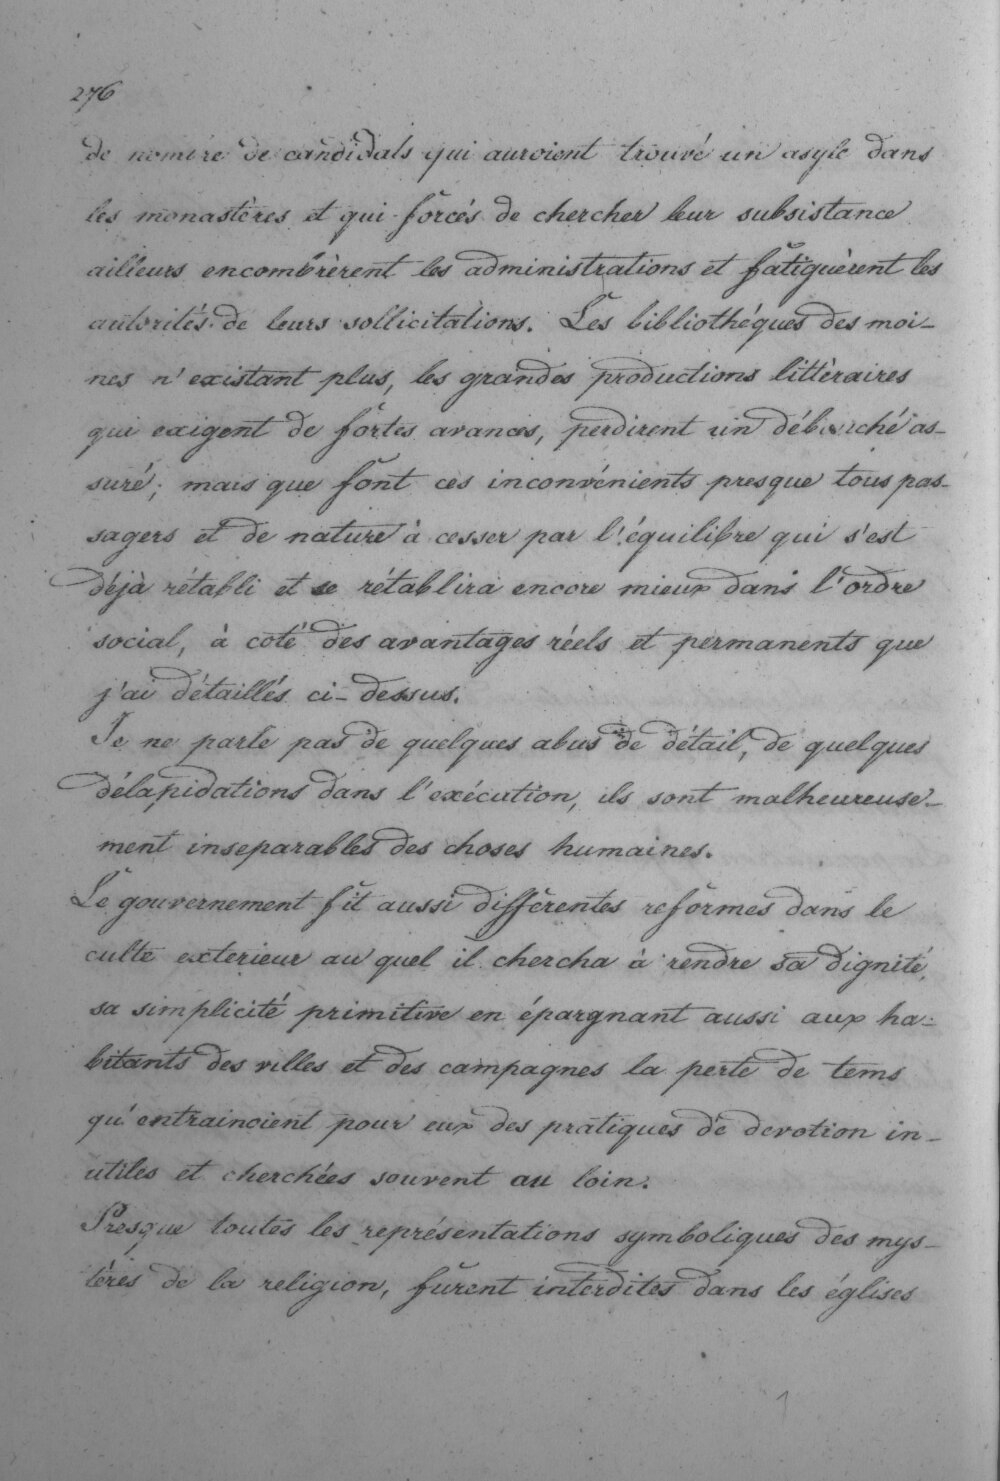 276
de nombre de candidats qui auroient trouvé un asyle dans
les monastères et qui forcés de chercher leur subsistance
ailleurs encombrèrent les administrations et fatiguèrent les
autorités de leurs sollicitations. Les bibliothéques des moi-
nes n'existant plus, les grandes productions littèraires
qui exigent de fortes avances, perdirent un débouché as-
suré; mais que font ces inconvénients presque tous pas-
sagers et de nature à cesser par l'équilibre qui s'est
déjà rétabli et se rétablira encore mieux dans l'ordre
social, à coté des avantages réels et permanents que
j'ai détaillés ci-dessus.
Je ne parle pas de quelques abus de détail, de quelques
délapidations dans l'exécution, ils sont malheureuse-
ment inseparables des choses humaines.
Le gouvernement fit aussi différentes reformes dans le
culte exterieur au quel il chercha à rendre sa dignité,
sa simplicité primitive en épargnant aussi aux ha-
bitants des villes et des campagnes la perte de tems
qu'entrainoient pour eux des pratiques de devotion in-
utiles et cherchées souvent au loin.
Presque toutes les représentations symboliques des mys-
tères de la religion, furent interdites dans les églises